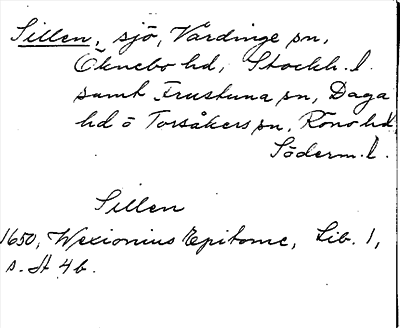 Sillen, sjö, Vårdinge sn,
Öknebo hd, Stockh. l.
samt Frustuna sn, Daga
hd o Torsåkers sn, Rönö hd
Söderm. l.
Sillen
1650, Wexionius Epitome, Lib. 1,
s. H 4b.